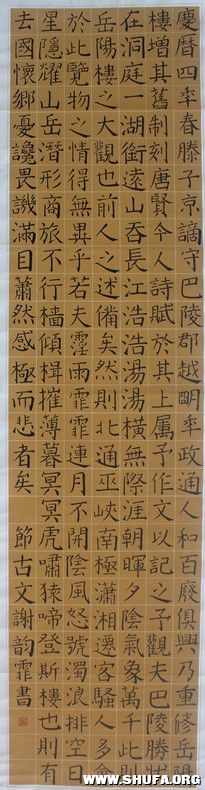 慶曆四年春滕子京謫守巴陵郡越明年政通人和百廢俱興乃重修岳陽
樓增其舊制刻唐賢今人詩賦於其上屬予作文以記之予觀夫巴陵勝狀
在洞庭一湖銜遠山吞長江浩浩湯湯橫無際涯朝暉夕陰氣象萬千此則
岳陽樓之大觀也前人之述備矣然則北通巫峽南極瀟湘遷客騷人多會
於此覽物之情得無異乎若夫霪雨霏霏連月不開陰風怒號濁浪排空日
星隱耀山岳潛形商旅不行檣傾楫摧薄暮冥冥虎嘯猿啼登斯樓也則有
去國懷鄉憂讒畏譏滿目蕭然感極而悲者矣 節古文謝韵霏書
WWW.SHUFA.ORG